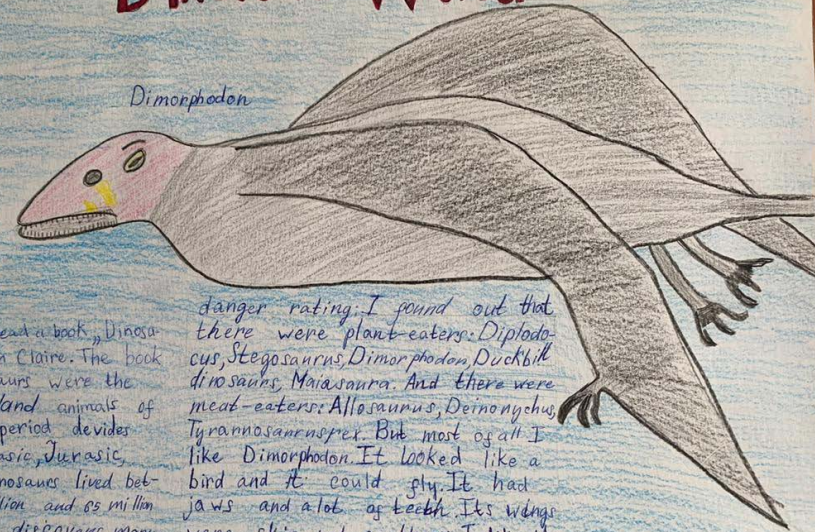 Dimorphodon
ead a book „Dinosa-
Claire. The book
aurs were the
land animals of
period devides
asic, Jurasic,
nosaurs lived bet-
lion and 65 million
danger rating: I found out that
there were plant-eaters: Diplodo-
cus, Stegosaurus, Dimorphodon, Duckbill
dinosaurs, Maiasaura. And there were
meat-eaters: Allosaurus, Deinonychus,
Tyrannosaurusrex. But most of all I
like Dimorphodon. It looked like a
bird and it could fly. It had
jaws and a lot of teeth. Its wings